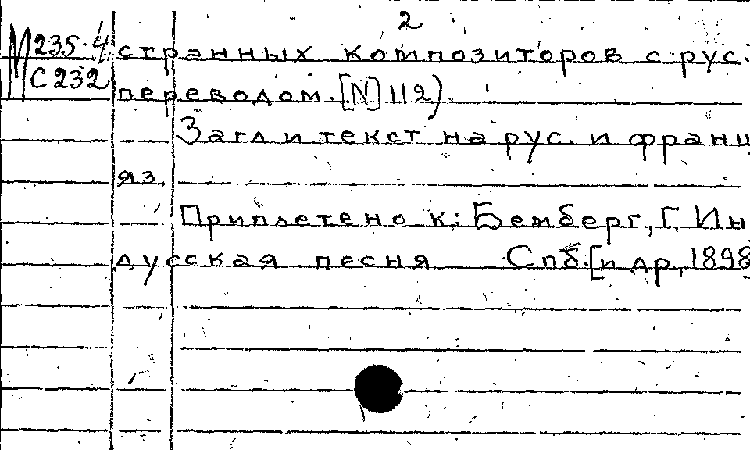 2
М 235-4 странных композиторов с рус.
С 232 переводом. [N] 112).
Загл и текст на рус. и франц
яз.
Приплетено к: Бемберг, Г. Ин
дусская песня Спб. [и др., 1898